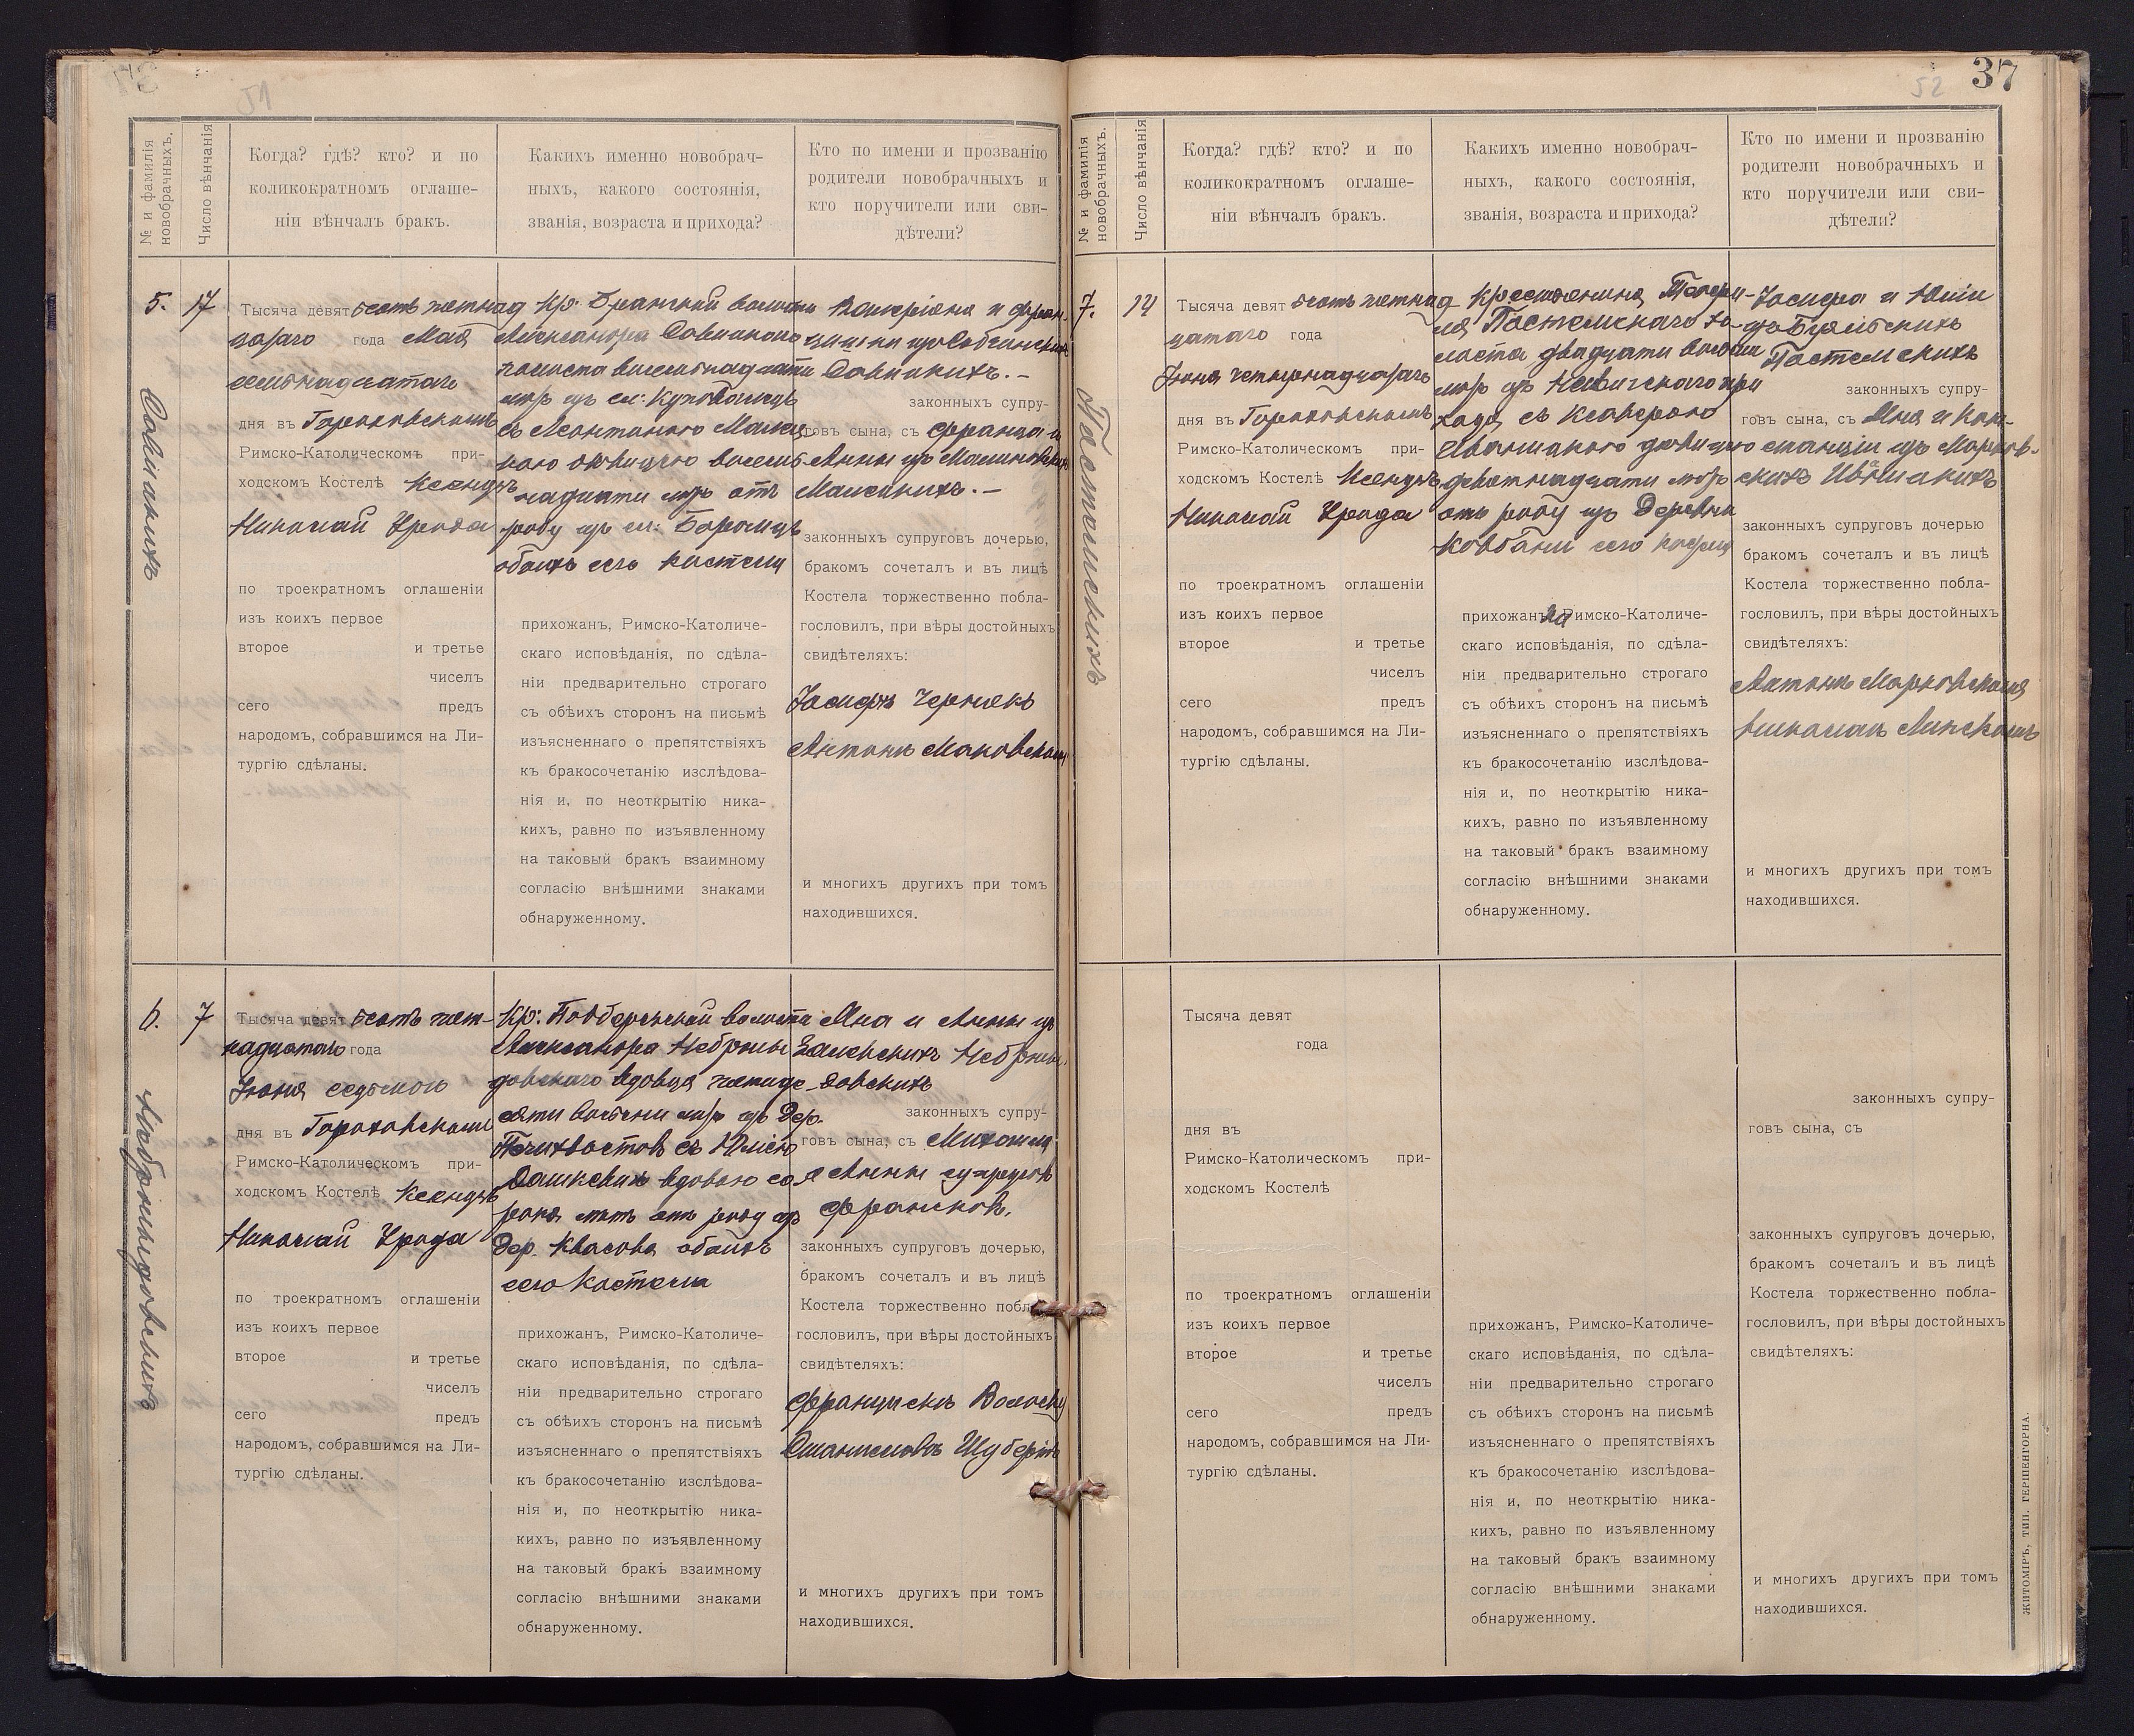 51
№ и фамилія новобрачныхъ.
Число вѣнчанія
Когда? гдѣ? кто? и по
коликократномъ оглаше-
ніи вѣнчалъ бракъ.
Какихъ именно новобрач-
ныхъ, какого состоянія,
званія, возраста и прихода?
Кто по имени и прозванію
родители новобрачныхъ и
кто поручители или сви-
дѣтели?
5.
17
Тысяча девятьсотъ пятнад
цатаго года Мая
семнадцатаго
дня въ Гороховскомъ
Римско-Католическомъ при-
ходскомъ Костелѣ Ксендзъ
Николай
по троекратномъ оглашеніи
изъ коихъ первое
второе и третье
чиселъ
сего предъ
народомъ, собравшимся на Ли-
тургію сдѣланы.
Кр: волости
Александра
холоста восемнадцати
лѣтъ изъ
съ
дѣвицею восем
надцати лѣтъ отъ
роду изъ
обоихъ сего костела
прихожанъ, Римско-Католиче-
скаго исповѣданія, по сдѣла-
ніи предварительно строгаго
съ обѣихъ сторонъ на письмѣ
изъясненнаго о препятствіяхъ
къ бракосочетанію изслѣдова-
нія и, по неоткрытію ника-
кихъ, равно по изъявленному
на таковый бракъ взаимному
согласію внѣшними знаками
обнаруженному.
Валеріана и Фран-
законныхъ супру-
говъ сына, съ Франца и
Анны изъ
законныхъ супруговъ дочерью,
бракомъ сочеталъ и въ лицѣ
Костела торжественно побла-
гословилъ, при вѣры достойныхъ
свидѣтеляхъ:
Іосифъ Чернякъ
Антонъ
и многихъ другихъ при томъ
находившихся.
6.
7
Тысяча девятьсотъ пят-
надцатаго года
Іюня седьмого
дня въ Гороховскомъ
Римско-Католическомъ при-
ходскомъ Костелѣ Ксендзъ
Николай
по троекратномъ оглашеніи
изъ коихъ первое
второе и третье
чиселъ
сего предъ
народомъ, собравшимся на Ли-
тургію сдѣланы.
Кр: волости
Александра
вдовца пятиде-
сяти восьми лѣтъ изъ дер.
съ
вдовою со
рока лѣтъ отъ роду изъ
дер. Квасова обоихъ
сего Костела
прихожанъ, Римско-Католиче-
скаго исповѣданія, по сдѣла-
ніи предварительно строгаго
съ обѣихъ сторонъ на письмѣ
изъясненнаго о препятствіяхъ
къ бракосочетанію изслѣдова-
нія и, по неоткрытію ника-
кихъ, равно по изъявленному
на таковый бракъ взаимному
согласію внѣшними знаками
обнаруженному.
Яна и Анны изъ
Залевскихъ
законныхъ супру-
говъ сына, съ Михаила
и Анны супруговъ
законныхъ супруговъ дочерью,
бракомъ сочеталъ и въ лицѣ
Костела торжественно побла-
гословилъ, при вѣры достойныхъ
свидѣтеляхъ:
Францискъ
Станиславъ
и многихъ другихъ при томъ
находившихся.
52
37
№ и фамилія новобрачныхъ.
Число вѣнчанія
Когда? гдѣ? кто? и по
коликократномъ оглаше-
ніи вѣнчалъ бракъ.
Какихъ именно новобрач-
ныхъ, какого состоянія,
званія, возраста и прихода?
Кто по имени и прозванію
родители новобрачныхъ и
кто поручители или сви-
дѣтели?
7.
14
Тысяча девятьсотъ пятнад
цатаго года
Іюня четырнадцатаго
дня въ Гороховскомъ
Римско-Католическомъ при-
ходскомъ Костелѣ Ксендзъ
Николай
по троекратномъ оглашеніи
изъ коихъ первое
второе и третье
чиселъ
сего предъ
народомъ, собравшимся на Ли-
тургію сдѣланы.
Крестьянина
хо-
лоста двадцати восьми
лѣтъ изъ при
хода съ Ксаверою
дѣвицею
девятнадцати лѣтъ
отъ роду изъ деревни
сего костела
прихожанъ, Римско-Католиче-
скаго исповѣданія, по сдѣла-
ніи предварительно строгаго
съ обѣихъ сторонъ на письмѣ
изъясненнаго о препятствіяхъ
къ бракосочетанію изслѣдова-
нія и, по неоткрытію ника-
кихъ, равно по изъявленному
на таковый бракъ взаимному
согласію внѣшними знаками
обнаруженному.
Іосифа и Юліи
законныхъ супру-
говъ сына, съ Яна и Кон-
станціи изъ
законныхъ супруговъ дочерью
бракомъ сочеталъ и въ лицѣ
Костела торжественно побла-
гословилъ, при вѣры достойныхъ
свидѣтеляхъ:
Антонъ
и многихъ другихъ при томъ
находившихся.
Тысяча девят
года
дня въ
Римско-Католическомъ при-
ходскомъ Костелѣ
по троекратномъ оглашеніи
изъ коихъ первое
второе и третье
чиселъ
сего предъ
народомъ, собравшимся на Ли-
тургію сдѣланы.
прихожанъ, Римско-Католиче-
скаго исповѣданія, по сдѣла-
ніи предварительно строгаго
съ обѣихъ сторонъ на письмѣ
изъясненнаго о препятствіяхъ
къ бракосочетанію изслѣдова-
нія и, по неоткрытію ника-
кихъ, равно по изъявленному
на таковый бракъ взаимному
согласію внѣшними знаками
обнаруженному.
законныхъ супру-
говъ сына, съ
законныхъ супруговъ дочерью,
бракомъ сочеталъ и въ лицѣ
Костела торжественно побла-
гословилъ, при вѣры достойныхъ
свидѣтеляхъ:
и многихъ другихъ при томъ
находившихся.
ЖИТОМІРЪ, ТИП. ГЕРШЕНГОРНА.